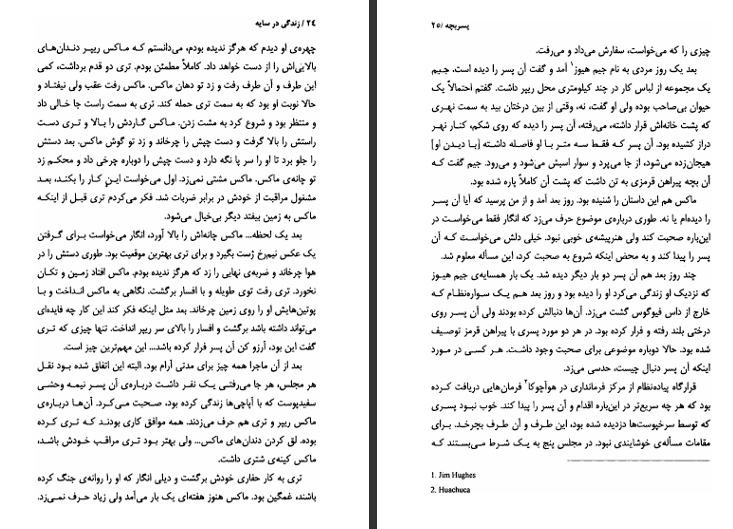 ۲۴ / زندگی در سایه
چهره‌ی او دیدم که هرگز ندیده بودم، می‌دانستم که ماکس ریپر دندان‌های
بالایی‌اش را از دست خواهد داد. کاملاً مطمئن بودم. تری دو قدم برداشت، کمی
این طرف و آن طرف رفت و زد تو دهان ماکس. ماکس رفت عقب ولی نیفتاد و
حالا نوبت او بود که به سمت تری حمله کند. تری به سمت راست جا خالی داد
و منتظر بود و شروع کرد به مشت زدن. ماکس گاردش را بالا و تری دست
راستش را بالا گرفت و دست چپش را چرخاند و زد تو گوش ماکس. بعد دستش
را جلو برد تا او را سر پا نگه دارد و دست چپش را دوباره چرخی داد و محکم زد
تو چانه‌ی ماکس. ماکس مشتی نمی‌زد. اول می‌خواست این کار را بکند، بعد
مشغول مراقبت از خودش در برابر ضربات شد. فکر می‌کردم تری قبل از اینکه
ماکس به زمین بیفتد دیگر بی‌خیال می‌شود.
بعد یک لحظه... ماکس چانه‌اش را بالا آورد، انگار می‌خواست برای گرفتن
یک عکس نیم‌رخ ژست بگیرد و برای تری بهترین موقعیت بود. طوری دستش را در
هوا چرخاند و ضربه‌ی نهایی را زد که هرگز ندیده بودم. ماکس افتاد زمین و تکان
نخورد. تری رفت توی طویله و با افسار برگشت. نگاهی به ماکس انداخت و با
پوتین‌هایش او را روی زمین چرخاند. بعد مثل اینکه فکر کند این کار چه فایده‌ای
می‌تواند داشته باشد برگشت و افسار را بالای سر ریپر انداخت. تنها چیزی که تری
گفت این بود، آرزو کن آن پسر فرار کرده باشد... این مهم‌ترین چیز است.
بعد از آن ماجرا همه چیز برای مدتی آرام بود. البته این اتفاق شده بود نقل
هر مجلس، هر جا می‌رفتی یک نفر داشت درباره‌ی آن پسر نیمه وحشی
سفیدپوست که با آپاچی‌ها زندگی کرده بود، صحبت می‌کرد. آن‌ها درباره‌ی
ماکس ریپر و تری هم حرف می‌زدند. همه موافق کاری بودند که تری کرده
بود، لق کردن دندان‌های ماکس... ولی بهتر بود تری مراقب خودش باشد،
ماکس کینه‌ی شتری داشت.
تری به کار حفاری خودش برگشت و دیلی انگار که او را روانه‌ی جنگ کرده
باشند، غمگین بود. ماکس هنوز هفته‌ای یک بار می‌آمد ولی زیاد حرف نمی‌زد.
پسربچه / ۲۵
چیزی را که می‌خواست، سفارش می‌داد و می‌رفت.
بعد یک روز مردی به نام جیم هیوز۱ آمد و گفت آن پسر را دیده است. جیم
یک مجموعه از لباس کار در چند کیلومتری محل ریپر داشت. گفتم احتمالاً یک
حیوان بی‌صاحب بوده ولی او گفت، نه، وقتی از بین درختان بید به سمت نهری
که پشت خانه‌اش قرار داشته، می‌رفته، آن پسر را دیده که روی شکم، کنار نهر
دراز کشیده بود. آن پسر که فقط سه متر با او فاصله داشته [با دیدن او]
هیجان‌زده می‌شود، از جا می‌پرد و سوار اسبش می‌شود و می‌رود. جیم گفت که
آن بچه پیراهن قرمزی به تن داشت که پشت آن کاملاً پاره شده بود.
ماکس هم این داستان را شنیده بود. روز بعد آمد و از من پرسید که آیا آن پسر
را دیده‌ام یا نه. طوری درباره‌ی موضوع حرف می‌زد که انگار فقط می‌خواست در
این‌باره صحبت کند ولی هنرپیشه‌ی خوبی نبود. خیلی دلش می‌خواست که آن
پسر را پیدا کند و به محض اینکه شروع به صحبت کرد، این مسأله معلوم شد.
چند روز بعد هم آن پسر دو بار دیگر دیده شد. یک بار همسایه‌ی جیم هیوز
که نزدیک او زندگی می‌کرد او را دیده بود و روز بعد هم یک سواره‌نظام که
خارج از داس فیوگوس گشت می‌زد. آن‌ها دنبالش کرده بودند ولی آن پسر روی
درختی بلند رفته و فرار کرده بود. در هر دو مورد پسری با پیراهن قرمز توصیف
شده بود. حالا دوباره موضوعی برای صحبت وجود داشت. هر کسی در مورد
اینکه آن پسر دنبال چیست، حدسی می‌زد.
قرارگاه پیاده‌نظام از مرکز فرمانداری در هوآچوکا۲ فرمان‌هایی دریافت کرده
بود که هر چه سریع‌تر در این‌باره اقدام و آن پسر را پیدا کند. خوب نبود پسری
که توسط سرخپوست‌ها دزدیده شده بود، این طرف و آن طرف بچرخد. برای
مقامات مسأله‌ی خوشایندی نبود. در مجلس پنج به یک شرط می‌بستند که
1. Jim Hughes
2. Huachuca